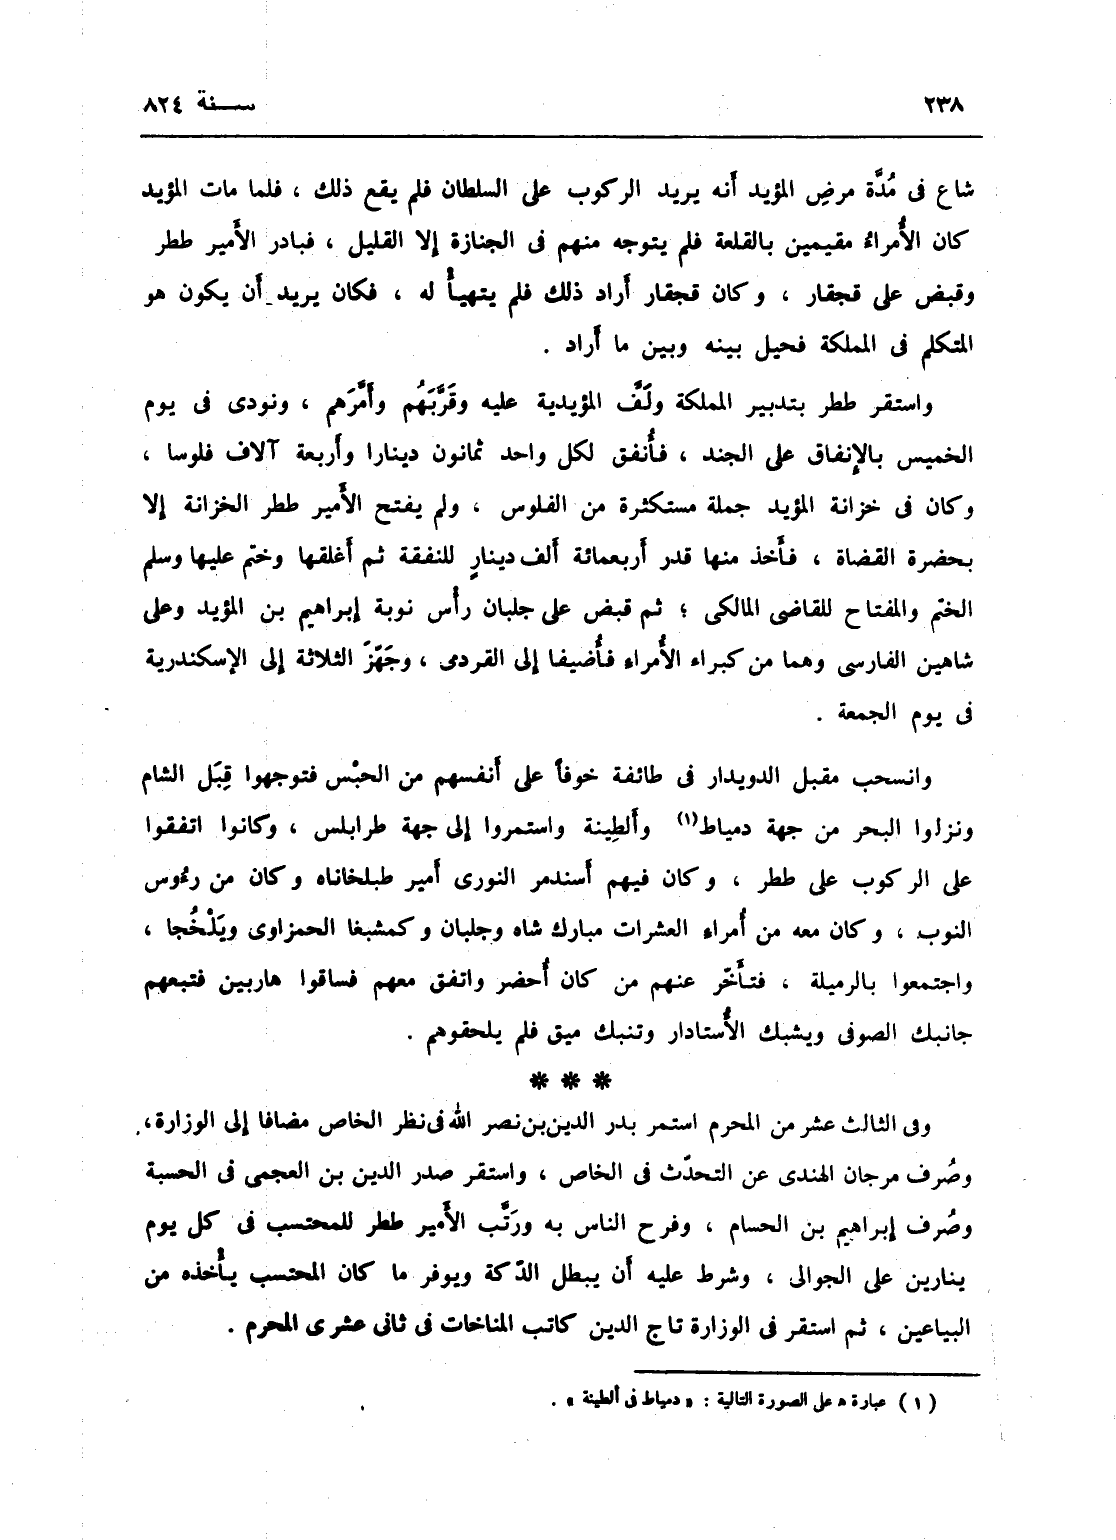 ٢٣٨
سنة ٨٢٤
شاع فى مُدَّة مرضِ المؤيد أنه يريد الركوب على السلطان فلم يقع ذلك ، فلما مات المؤيد
كان الأُمراءُ مقيمين بالقلعة فلم يتوجه منهم فى الجنازة إلا القليل ، فبادر الأَمير ططر
وقبض على قجقار ، وكان قجقار أَراد ذلك فلم يتهيأْ له ، فكان يريد أَن يكون هو
المتكلم فى المملكة فحيل بينه وبين ما أَراد .
واستقر ططر بتدبير المملكة ولَفَّ المؤيدية عليه وقَرَّبَهُم وأَمَّرَهم ، ونودى فى يوم
الخميس بالإنفاق على الجند ، فأُنفق لكل واحد ثمانون دينارا وأَربعة آلاف فلوسا ،
وكان فى خزانة المؤيد جملة مستكثرة من الفلوس ، ولم يفتح الأَمير ططر الخزانة إلا
بحضرة القضاة ، فأَخذ منها قدر أَربعمائة أَلف دينارٍ للنفقة ثم أَغلقها وختم عليها وسلم
الختم والمفتاح للقاضى المالكى ؛ ثم قبض على جلبان رأْس نوبة إبراهيم بن المؤيد وعلى
شاهين الفارسى وهما من كبراء الأُمراء فأُضيفا إلى القردمى ، وجَهَّزَ الثلاثة إلى الإسكندرية
فى يوم الجمعة .
وانسحب مقبل الدويدار فى طائفة خوفاً على أَنفسهم من الحبْس فتوجهوا قِبَل الشام
ونزلوا البحر من جهة دمياط(١) وأَلطِينة واستمروا إلى جهة طرابلس ، وكانوا اتفقوا
على الركوب على ططر ، وكان فيهم أَسندمر النورى أَمير طبلخاناه وكان من رءُوس
النوب ، وكان معه من أُمراء العشرات مبارك شاه وجلبان وكمشبغا الحمزاوى ويَلْخُجا ،
واجتمعوا بالرميلة ، فتأَخّر عنهم من كان أُحضر واتفق معهم فساقوا هاربين فتبعهم
جانبك الصوفى ويشبك الأُستادار وتنبك ميق فلم يلحقوهم .
* * *
وفى الثالث عشر من المحرم استمر بدر الدين بن نصر الله فى نظر الخاص مضافا إلى الوزارة،
وصُرف مرجان الهندى عن التحدّث فى الخاص ، واستقر صدر الدين بن العجمى فى الحسبة
وصُرف إبراهيم بن الحسام ، وفرح الناس به ورَتَّب الأَمير ططر للمحتسب فى كل يوم
ينارين على الجوالى ، وشرط عليه أَن يبطل الدّكة ويوفر ما كان المحتسب يأْخذه من
البياعين ، ثم استقر فى الوزارة تاج الدين كاتب المناخات فى ثانى عشرى المحرم .
(١) عبارة ه على الصورة التالية : « دمياط فى ألطينة » .